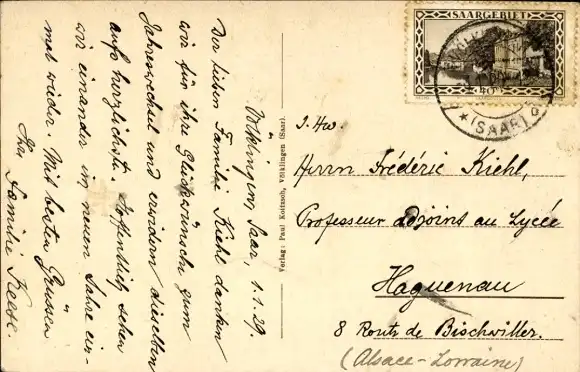 Völklingen, Saar, 1.1.29
Der lieben Familie Kiehl danken
wir für ihre Glückwünsche zum
Jahreswechsel und erwidern dieselben
aufs herzlichste. Hoffentlich sehen
wir einander im neuen Jahre ein-
mal wieder. Mit besten Grüssen
Ihre Familie
Verlag: Paul Koitzsch, Völklingen (Saar).
SAARGEBIET
40
★ (SAAR)
Herrn Frédéric Kiehl,
Professeur adjoint au Lycée
Haguenau
8 Route de Bischwiller.
(Alsace-Lorraine)